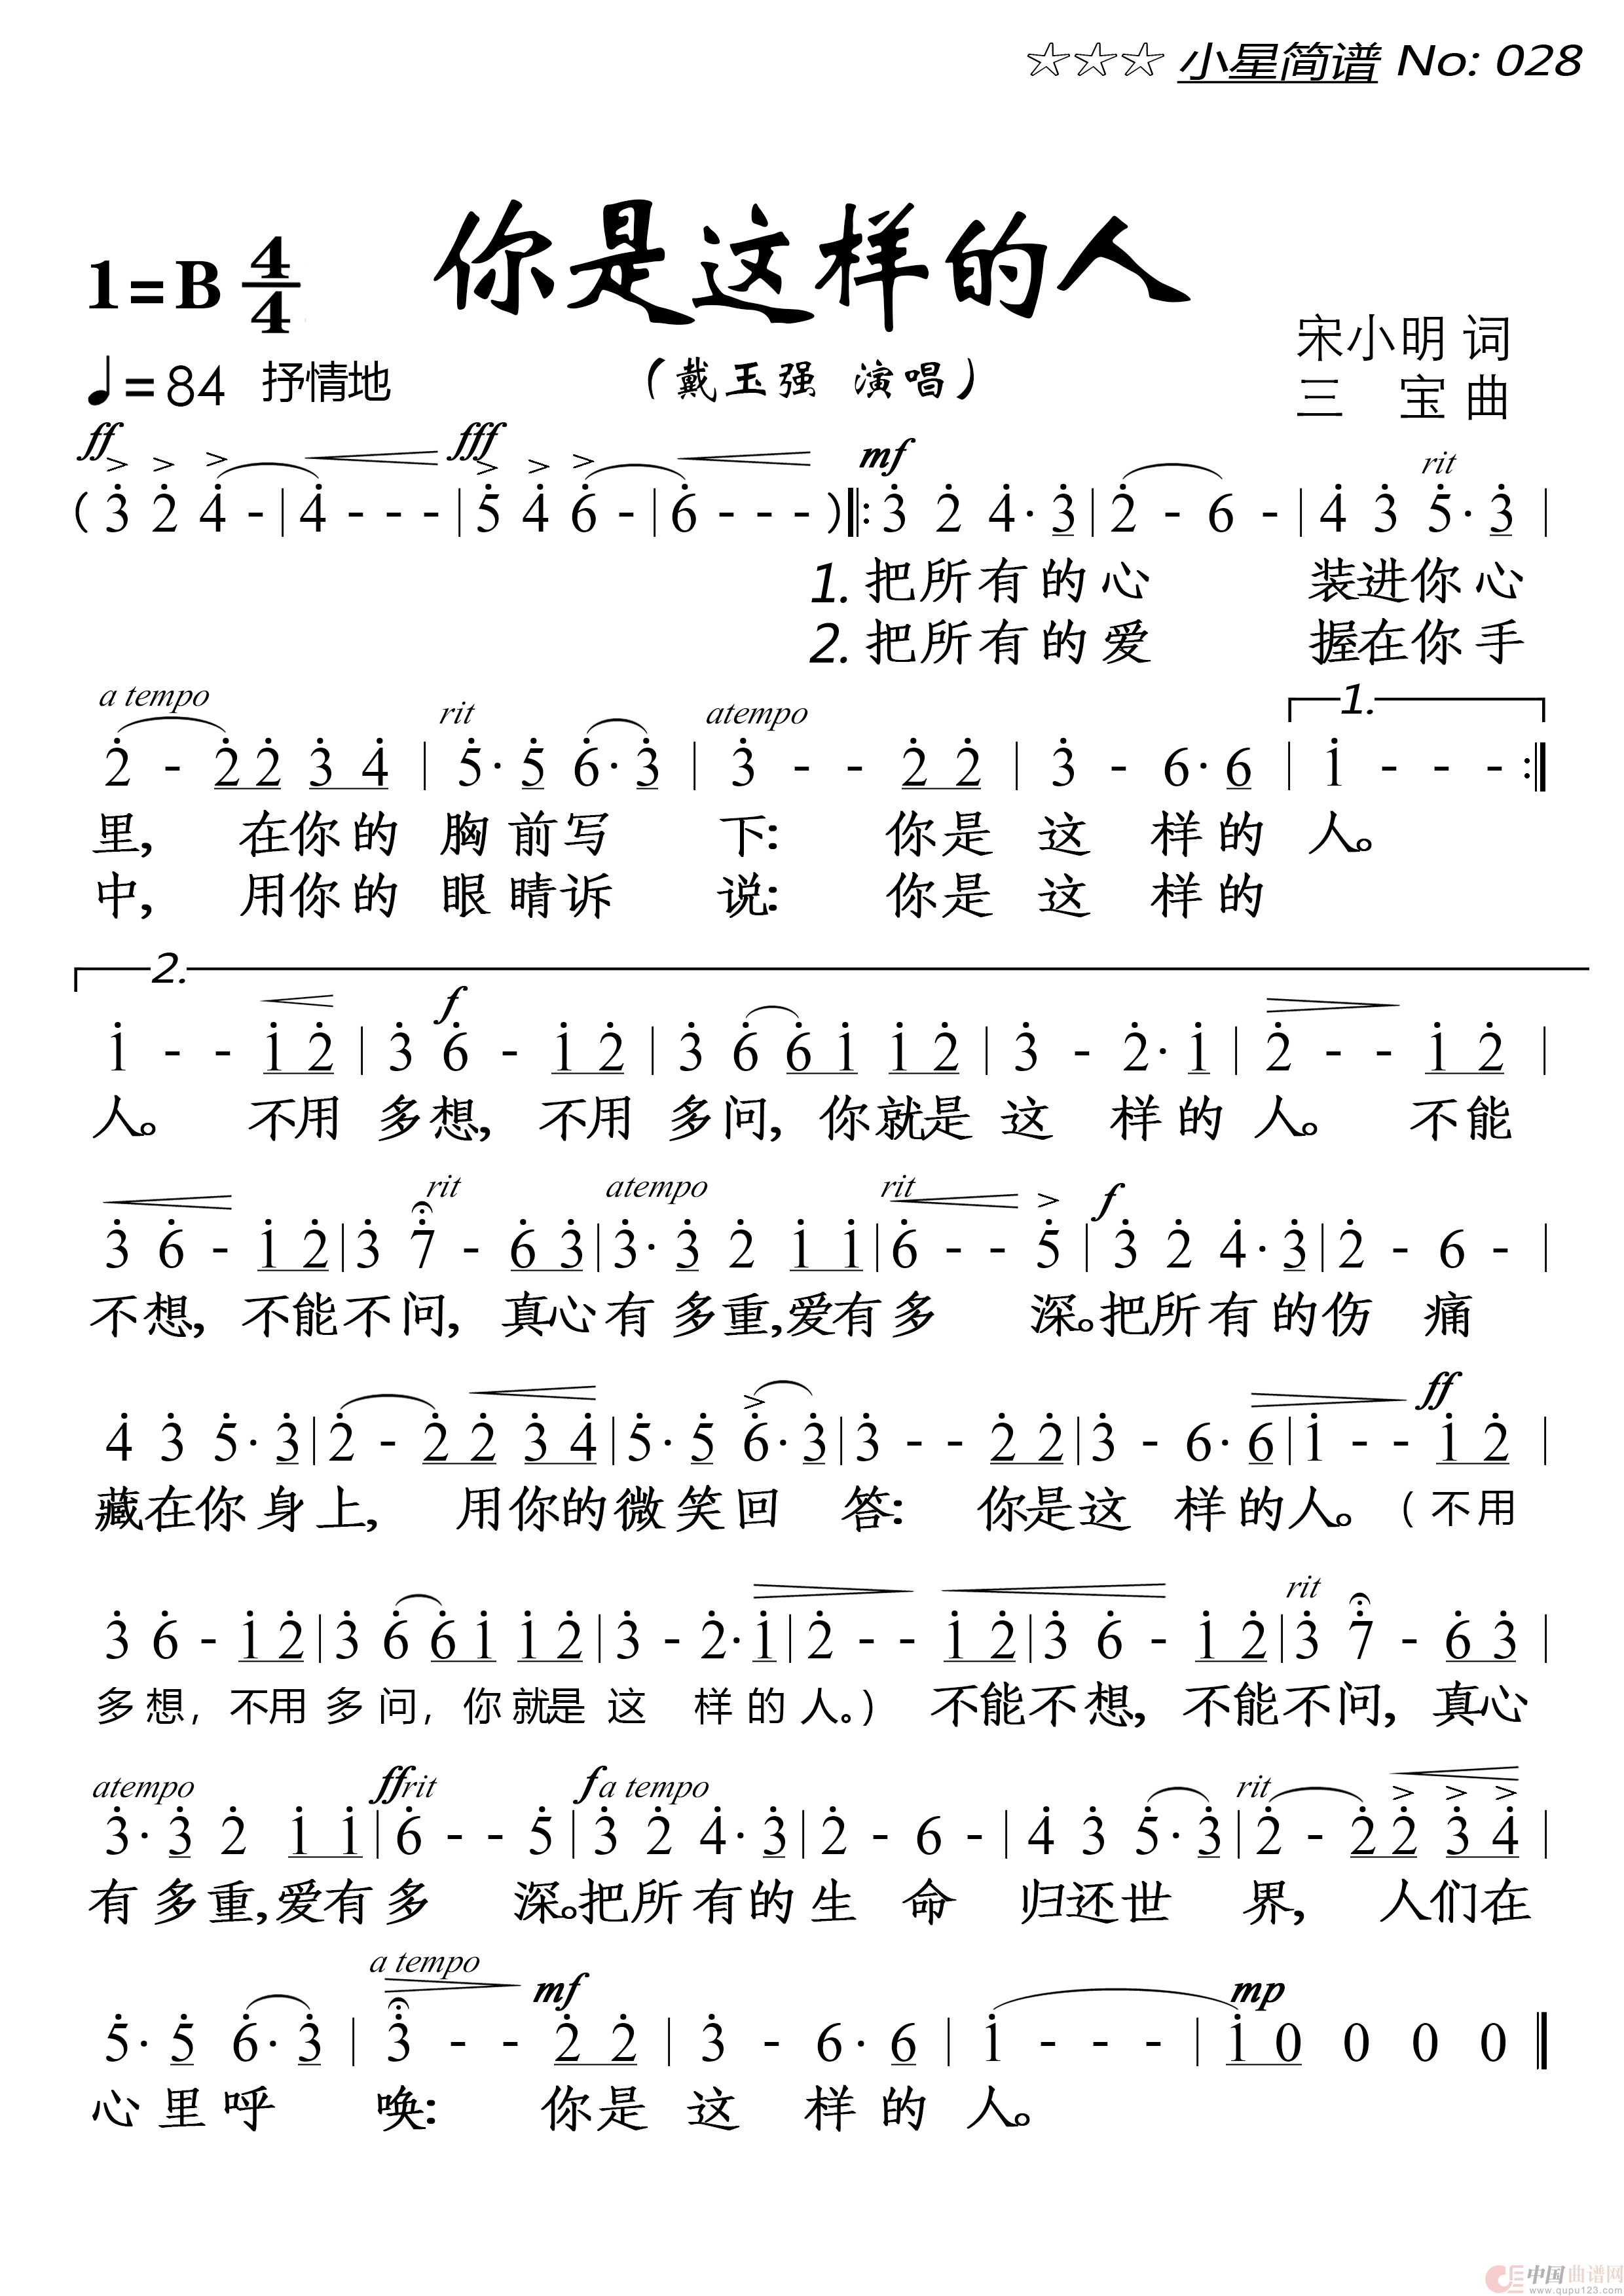 ☆☆☆ 小星简谱 No: 028
你是这样的人
1=B 4/4
宋小明 词
♩=84 抒情地 (戴玉强 演唱)
三 宝 曲
ff fff mf rit
( 3̇ 2̇ 4̇ - | 4̇ - - - | 5̇ 4̇ 6̇ - | 6̇ - - - ) ‖: 3̇ 2̇ 4̇ · 3̇ | 2̇ - 6 - | 4̇ 3̇ 5̇ · 3̇ |
1. 把所有的心 装进你心
2. 把所有的爱 握在你手
a tempo rit atempo 1.
2̇ - 2̇ 2̇ 3̇ 4̇ | 5̇ · 5̇ 6̇ · 3̇ | 3̇ - - 2̇ 2̇ | 3̇ - 6 · 6 | 1̇ - - - :‖
里, 在你的 胸前写 下: 你是 这 样的 人。
中, 用你的 眼睛诉 说: 你是 这 样的
2.
f
1̇ - - 1̇ 2̇ | 3̇ 6̇ - 1̇ 2̇ | 3̇ 6̇ 6̇ 1̇ 1̇ 2̇ | 3̇ - 2̇ · 1̇ | 2̇ - - 1̇ 2̇ |
人。 不用 多想, 不用 多问, 你就是 这 样的 人。 不能
rit atempo rit f
3̇ 6̇ - 1̇ 2̇ | 3̇ 7̇ - 6̇ 3̇ | 3̇ · 3̇ 2̇ 1̇ 1̇ | 6̇ - - 5̇ | 3̇ 2̇ 4̇ · 3̇ | 2̇ - 6 - |
不想, 不能不问, 真心有多重,爱有多 深。把所有的伤 痛
ff
4̇ 3̇ 5̇ · 3̇ | 2̇ - 2̇ 2̇ 3̇ 4̇ | 5̇ · 5̇ 6̇ · 3̇ | 3̇ - - 2̇ 2̇ | 3̇ - 6 · 6 | 1̇ - - 1̇ 2̇ |
藏在你身上, 用你的微笑回 答: 你是这 样的人。(不用
rit
3̇ 6̇ - 1̇ 2̇ | 3̇ 6̇ 6̇ 1̇ 1̇ 2̇ | 3̇ - 2̇ · 1̇ | 2̇ - - 1̇ 2̇ | 3̇ 6̇ - 1̇ 2̇ | 3̇ 7̇ - 6̇ 3̇ |
多想, 不用多问, 你就是这 样的人。) 不能不想, 不能不问, 真心
atempo ff rit f a tempo rit
3̇ · 3̇ 2̇ 1̇ 1̇ | 6̇ - - 5̇ | 3̇ 2̇ 4̇ · 3̇ | 2̇ - 6 - | 4̇ 3̇ 5̇ · 3̇ | 2̇ - 2̇ 2̇ 3̇ 4̇ |
有多重,爱有多 深。把所有的生 命 归还世 界, 人们在
a tempo mf mp
5̇ · 5̇ 6̇ · 3̇ | 3̇ - - 2̇ 2̇ | 3̇ - 6 · 6 | 1̇ - - - | 1̇ 0 0 0 0 ‖
心里呼 唤: 你是 这 样的 人。
中国曲谱网
www.qupu123.com